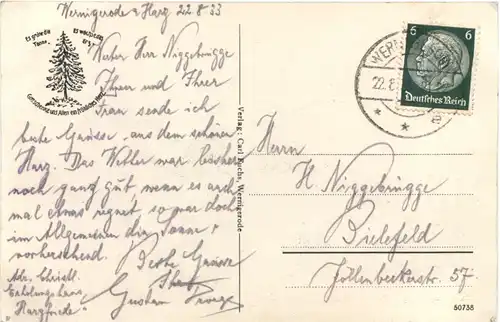 Wernigerode a Harz 22-8-33
Es grüne die Tanne,
Es wachse das Erz,
Gott schenke uns Allen ein fröhliches Herz!
Werter Herr Niggebrügge
Ihnen und Ihrer
Frau sende ich
beste Grüsse aus dem schönen
Harz. Das Wetter war bisher
noch ganz gut, wenn es auch
mal etwas regnet, so war doch
im Allgemeinen die Sonne
vorherrschend.
Beste Grüsse
Gustav
Adr. Christl.
Erholungsheim
"Harzfriede"
Verlag: Carl Fuchs, Wernigerode
WERNIGERODE
22.8.
6
6
Deutsches Reich
Herrn
H Niggebrügge
Bielefeld
Jöllenbeckerstr. 57
60738